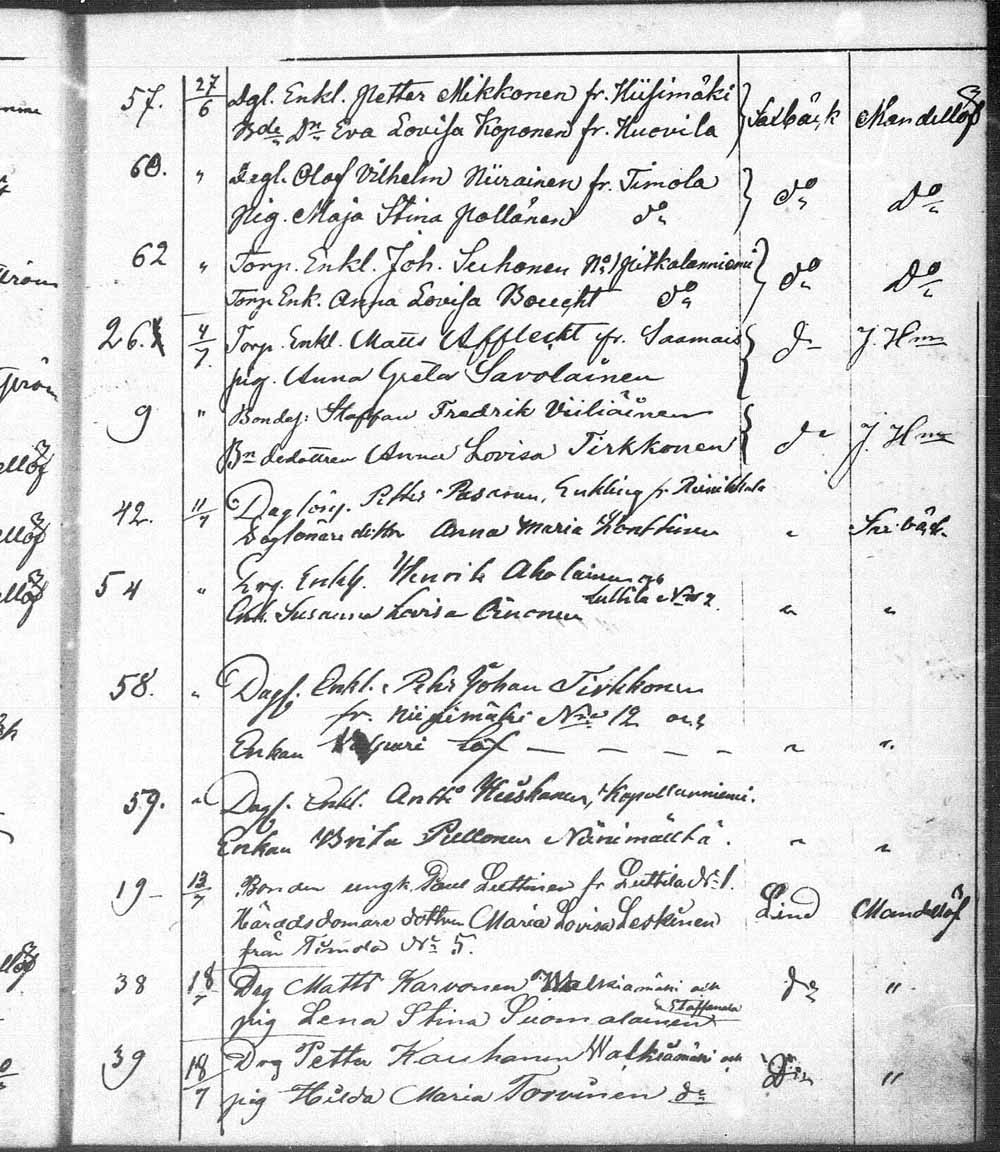 57. 27/6 Dgl. Enkl. Petter Mikkonen fr. Hiisimäki
Bde Dn Eva Lovisa Koponen fr. Huovila Salbäck Mandellöf
60. " Degl. Olof Vilhelm Niirainen fr. Timola
pig. Maja Stina Pollänen do do Do
62 " Torp. Enkl. Joh. Suhonen No 1 Pitkalanniemi
Torp. Enk. Anna Lovisa Boucht do do Do
26. 4/7 Torp. Enkl. Matts Afflecht fr. Saamais
pig. Anna Greta Savolainen do J. Hm
9 " Bondes: Staffan Fredrik Viiliäinen
Bn dedottren Anna Lovisa Tirkkonen do J. Hm
42. 11/7 Daglön. Petter Pasanen, Enkling fr
Daglönare dottr Anna Maria Konttinen "
54 " Enkl. Henrik Aholainen
Enk. Susanna Lovisa Luttila No 2. " "
58. " Dagl. Enkl. Pehr Johan Tirkkonen
fr. Niinimäki No 12 och
Enkan Löf — — — — " "
59. " Dagl. Enkl. Antti Huiskonen, Kopollanniemi.
Enkan Brita Pullonen Niinimältä. " "
19 - 13/7 Bonden ungk. Paul Luttinen fr Luttila No 1.
Häradsdomare dottren Maria Lovisa Leskinen Lind Mandellöf
från Timola No 5.
38 18/7 Drg Matts Karvonen Walkiamäki och
pig Lena Stina Suomalainen Staffanala do "
39 18/7 Drg Petter Kauhanen Walkiamäki och
pig Hilda Maria Torvinen do Do "